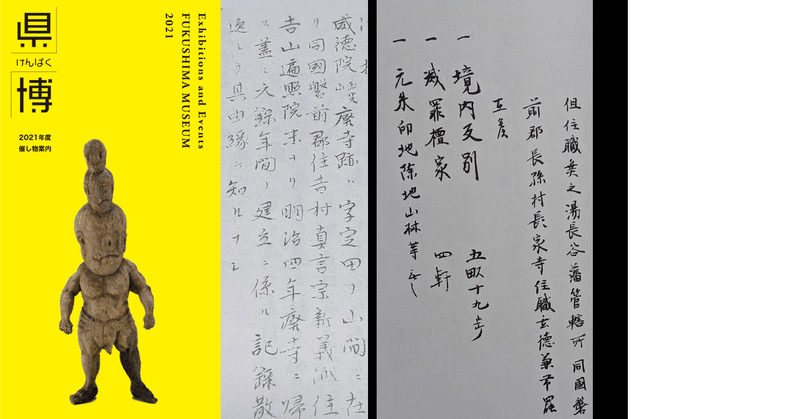 県
けんぱく
博
2021年度
催し物案内
Exhibitions and Events
FUKUSHIMA MUSEUM
2021
威徳院 廃寺跡ハ字定田ノ山間ニ在
リ同國磐前郡住吉村真言宗新義派住
吉山遍照院末ナリ明治四年廃寺ニ帰
ス蓋シ元録年間ノ建立ニ係ル記録散
逸シテ具由縁ヲ知ルナシ
但住職矣之湯長谷藩管轄所同國磐
前郡長孫村長家寺住職玄徳兼帯罷
在矣
一 境内反別 五畝十九歩
一 滅罪檀家 四軒
一 元朱印地除地山林等無之